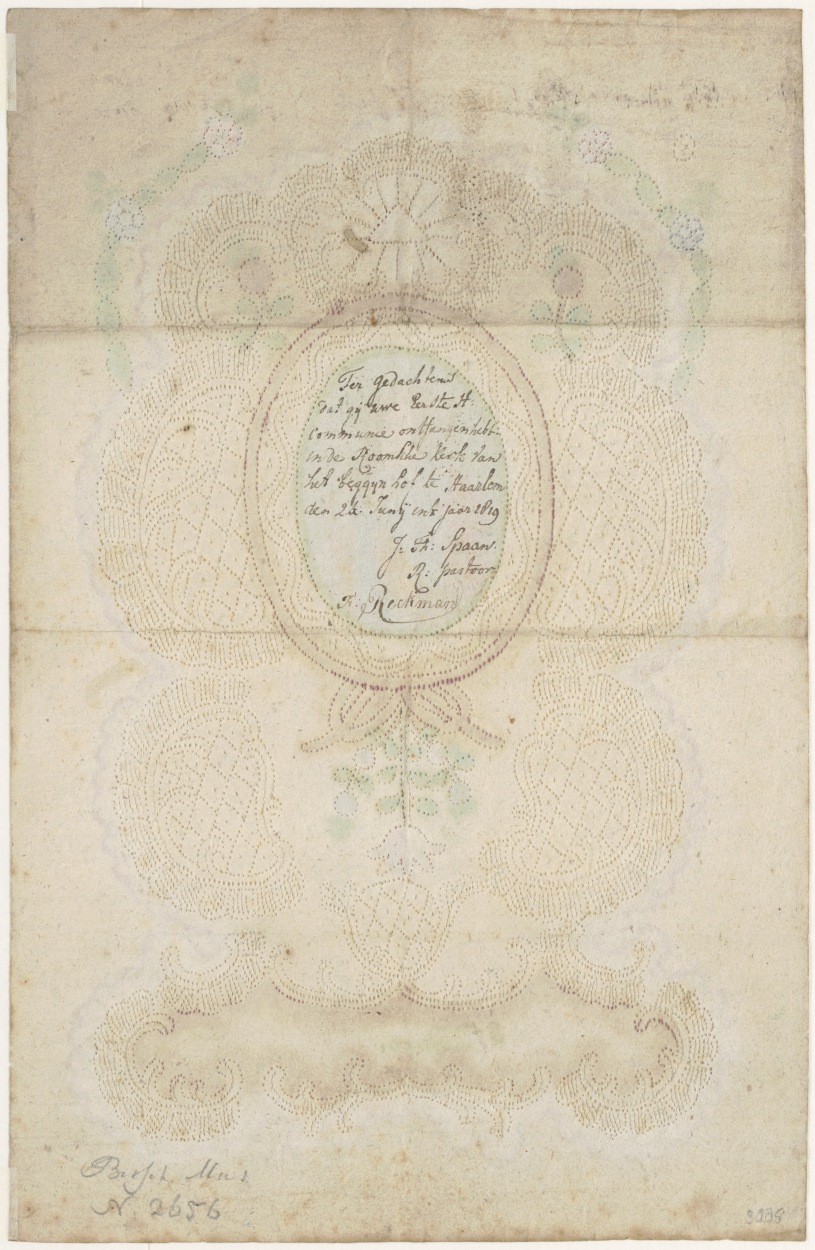 Ter gedachtenis
dat gij uwe Eerste H:
communie ontfangen hebt
in de Roomsche Kerk van
het beggyn hof te Haarlem
den 24 Junij in't jaar 1819
J: Th: Spaan
R: pastoor
Reckman
Bissch Mus
N 2656